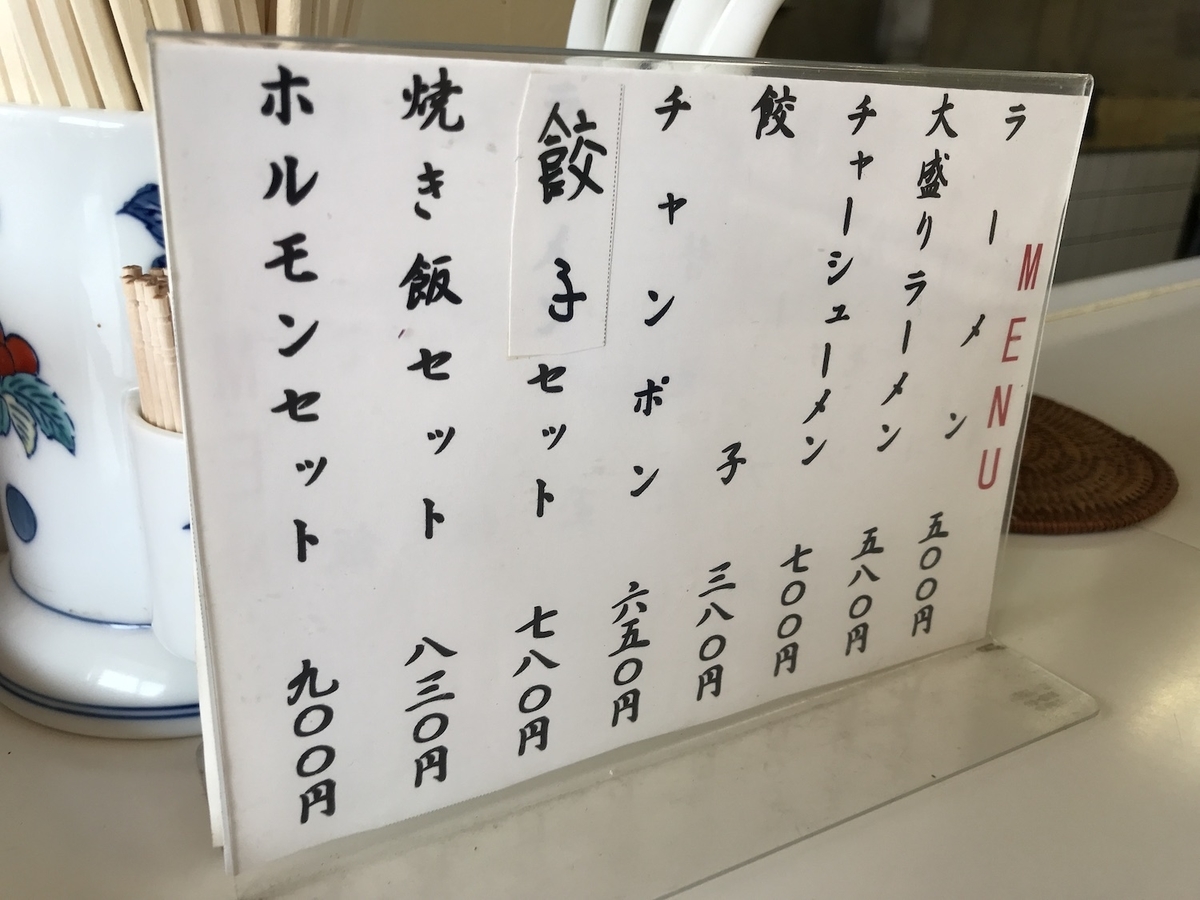 MENU
ラーメン 五〇〇円
大盛りラーメン 五八〇円
チャーシューメン 七〇〇円
餃子 三八〇円
チャンポン 六五〇円
餃子セット 七八〇円
焼き飯セット 八三〇円
ホルモンセット 九〇〇円